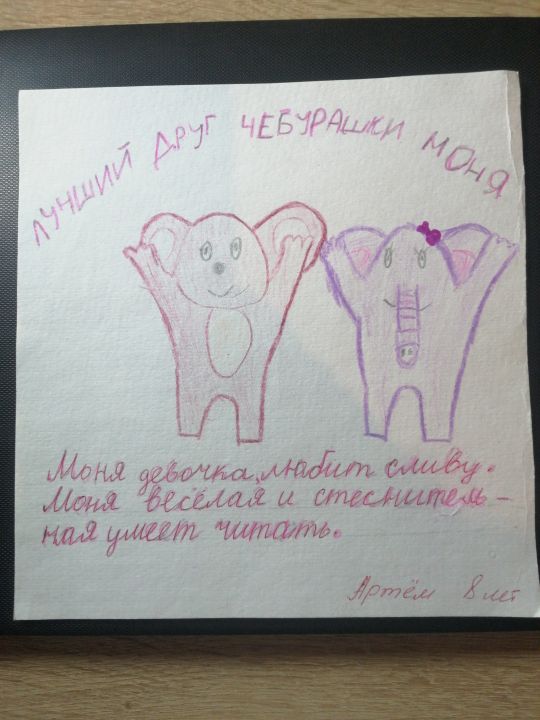 ЛУЧШИЙ ДРУГ ЧЕБУРАШКИ МОНЯ
Моня девочка, любит сливу.
Моня весёлая и стеснитель-
ная умеет читать.
Артём 8 лет